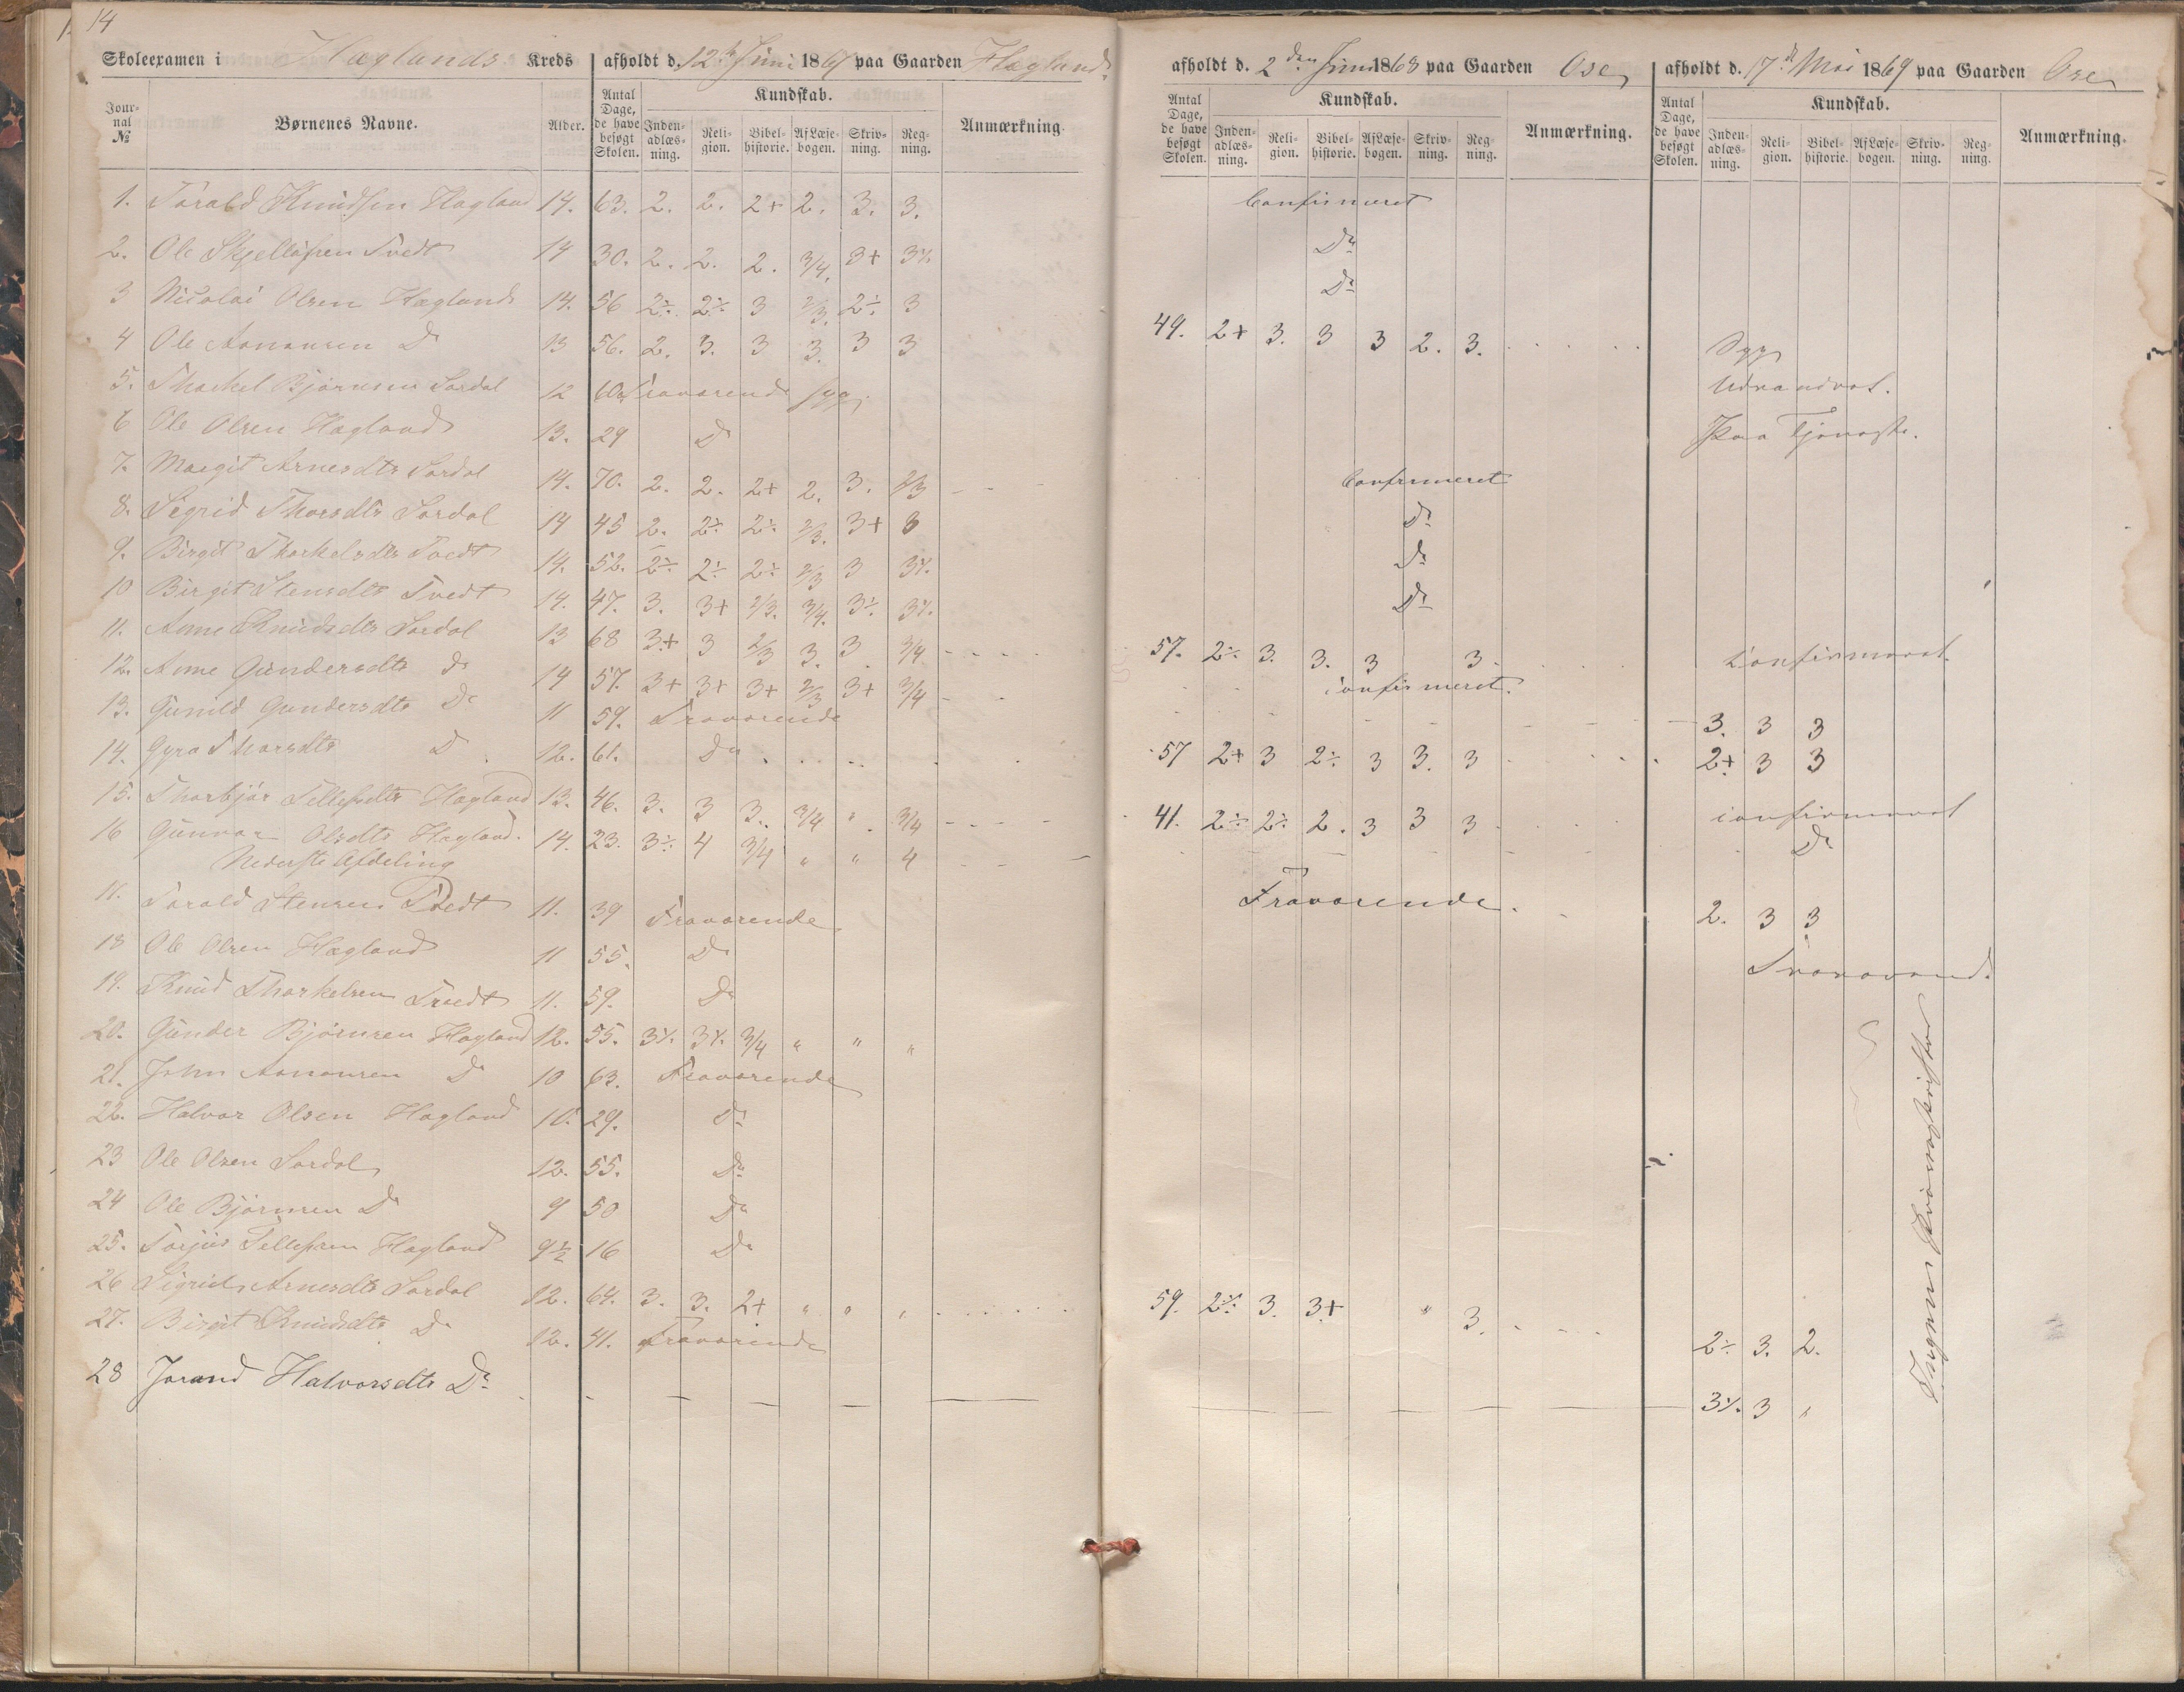 14
Skoleexamen i Haglands Kreds afholdt d. 12te Juni 1867 paa Gaarden Hagland.
Jour-nal № Børnenes Navne. Alder. Antal Dage, de have besøgt Skolen. Kundskab. Anmærkning.
Inden-adlæs-ning. Reli-gion. Bibel-historie. Af Læse-bogen. Skriv-ning. Reg-ning.
1. Torald Knudsen Hagland 14. 63. 2. 2. 2+ 2. 3. 3.
2. Ole Skjelløfsen Tvedt 14 30. 2. 2. 2. 3/4. 3+ 3÷.
3 Nicolai Olsen Hagland 14. 56 2÷. 2÷ 3 2/3. 2÷ 3
4 Ole Aanonsen Do 13 56. 2. 3. 3 3. 3 3
5. Thorkel Bjørnsen Sordal 12 60. Fraværende syg.
6 Ole Olsen Hagland 13. 29 Do
7. Margit Arnesdtr Sordal 14. 70. 2. 2. 2+ 2. 3. 2/3
8. Sigrid Thorsdtr Sordal 14 45 2. 2÷ 2÷. 2/3. 3+ 3
9. Birgit Thorkelsdtr Tvedt 14. 52. 2÷. 2÷ 2÷ 2/3 3 3÷.
10 Birgit Stensdtr Tvedt 14. 47. 3. 3+ 2/3. 3/4. 3÷. 3÷.
11. Anne Knudsdtr Sordal 13 68 3+ 3 2/3 3. 3 3/4
12. Anne Gundersdtr Do 14 57. 3+ 3+ 3+ 2/3 3+ 3/4
13. Gunild Gundersdtr Do 11 59. Fraværende
14. Gyro Thorsdtr Do 12. 61. Do
15. Thorbjør Tellefsdtr Hagland 13. 46. 3. 3 3. 3/4 " 3/4
16 Gunvor Olsdtr Hagland. 14. 23. 3÷ 4 3/4 " " 4
Nederste Afdeling
Torald Stensen Tvedt 11. 39 Fraværende
18 Ole Olsen Hagland 11 55. Do
19. Knud Thorkelsen Tvedt 11. 59. Do
20. Gunder Bjørnsen Hagland 12. 55. 3÷. 3÷. 3/4 " " "
21. John Aanonsen Do 10 63. Fraværende
22. Halvor Olsen Hagland 10. 29. Do
23 Ole Olsen Sordal 12. 55. Do
24 Ole Bjørnsen Do 9 50 Do
25. Torjus Tellefsen Hagland 9 1/2 16 Do
26 Sigrid Arnesdtr Sordal 12. 64. 3. 3. 2+ " " "
27. Birgit Knudsdtr Do 12. 41. Fraværende
28 Jorand Halvorsdtr Do
afholdt d. 2den Juni 1868 paa Gaarden Ose
Antal Dage, de have besøgt Skolen. Kundskab. Anmærkning.
Inden-adlæs-ning. Reli-gion. Bibel-historie. Af Læse-bogen. Skriv-ning. Reg-ning.
Confirmeret
Do
Do
49. 2+ 3. 3 3 2. 3.
Confirmeret
Do
Do
Do
57. 2÷. 3. 3. 3 3.
confirmeret.
57 2+ 3 2÷ 3 3. 3
41. 2÷ 2÷ 2. 3 3 3
Fraværende.
59. 2÷. 3. 3+ " 3.
afholdt d. 17de Mai 1869 paa Gaarden Ose
Antal Dage, de have besøgt Skolen. Kundskab. Anmærkning.
Inden-adlæs-ning. Reli-gion. Bibel-historie. Af Læse-bogen. Skriv-ning. Reg-ning.
Syg
Udvandret.
Paa Tjeneste.
Confirmeret.
3. 3 3
2+ 3 3
confirmeret
Do
2. 3 3
Fraværende
2÷ 3. 2.
3÷. 3 "
Ingen